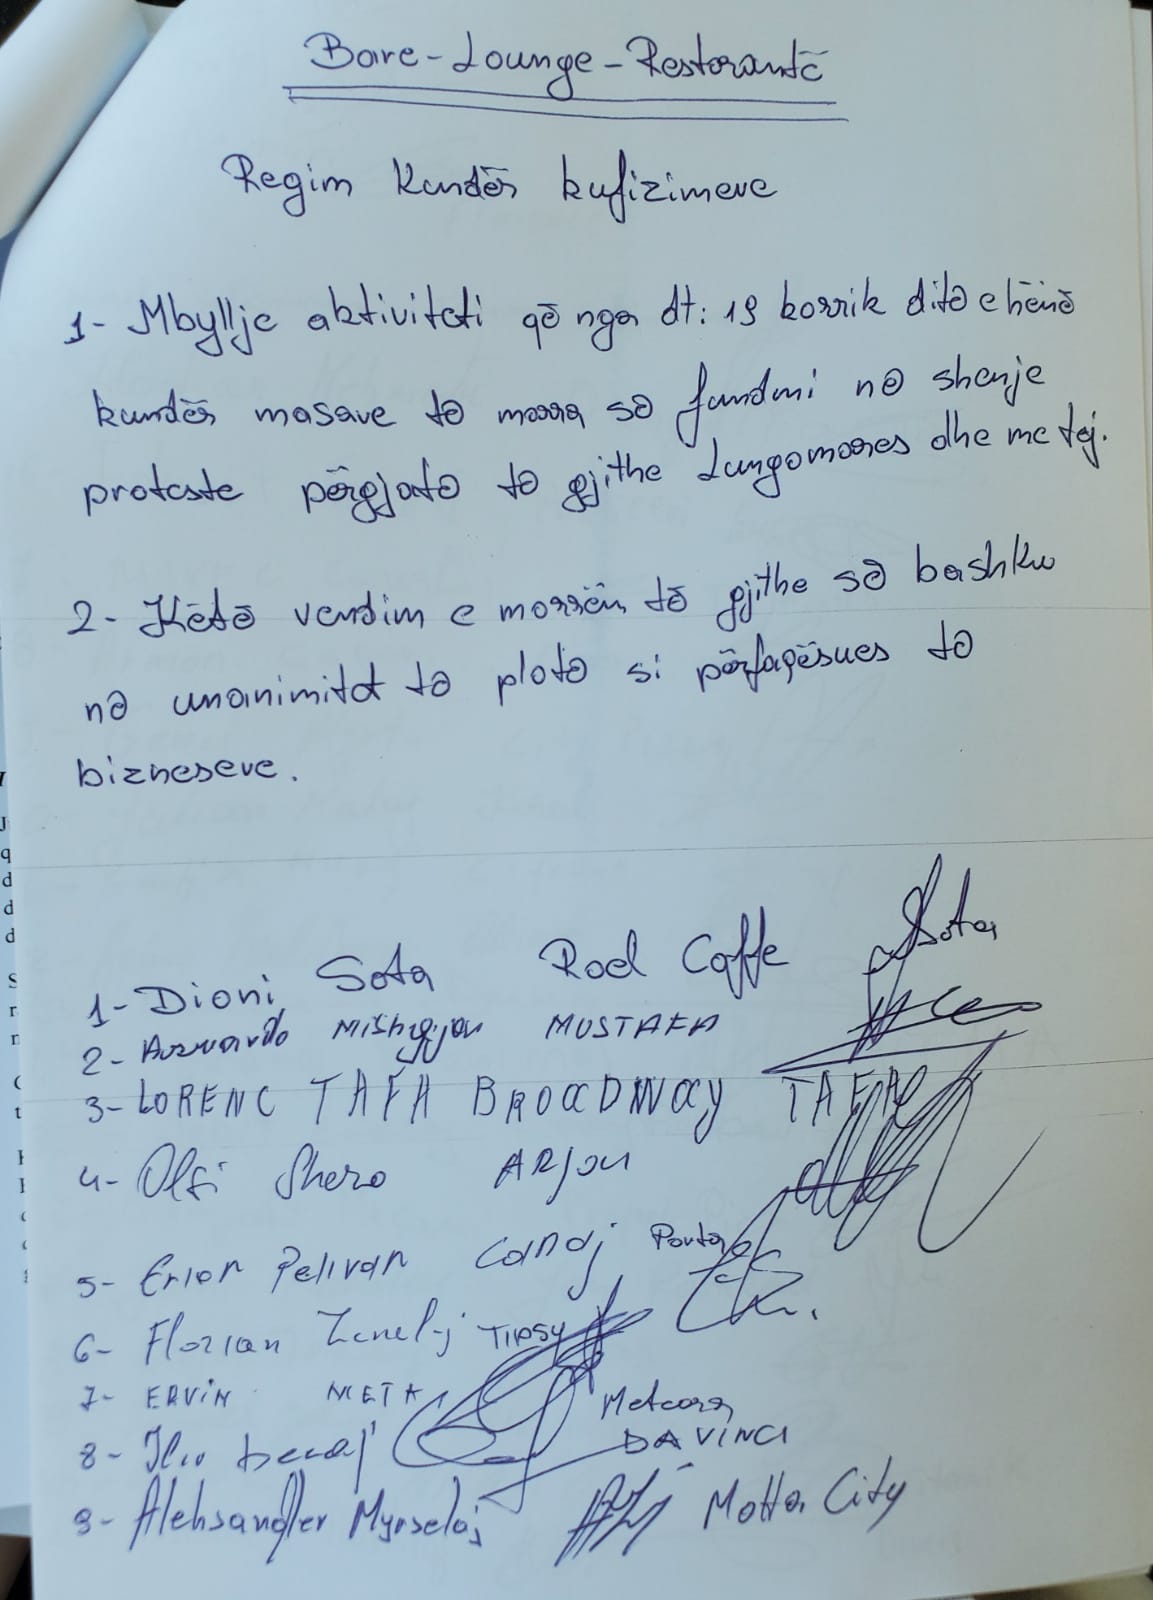 Bare-Lounge-Restorantë
Regim Kundër kufizimeve
1- Mbyllje aktiviteti që nga dt: 19 korrik ditë e hënë
kundër masave të marra së fundmi në shenje
proteste përgjatë të gjithe Lungomares dhe me tej.
2- Këtë vendim e morrën të gjithe së bashku
në unanimitet të plotë si përfaqësues të
bizneseve.
1- Dioni Sota Roel Caffe Sota
2- MUSTAFA
3- LORENC TAFA BROADWAY TAFA
4- Olsi Shero ARJON
5- Erion Pelivan Canaj
6- Florian Zenelj TIPSY
7- ERVIN META Meteora
8- DA VINCI
9- Aleksander Myrselaj Motta City